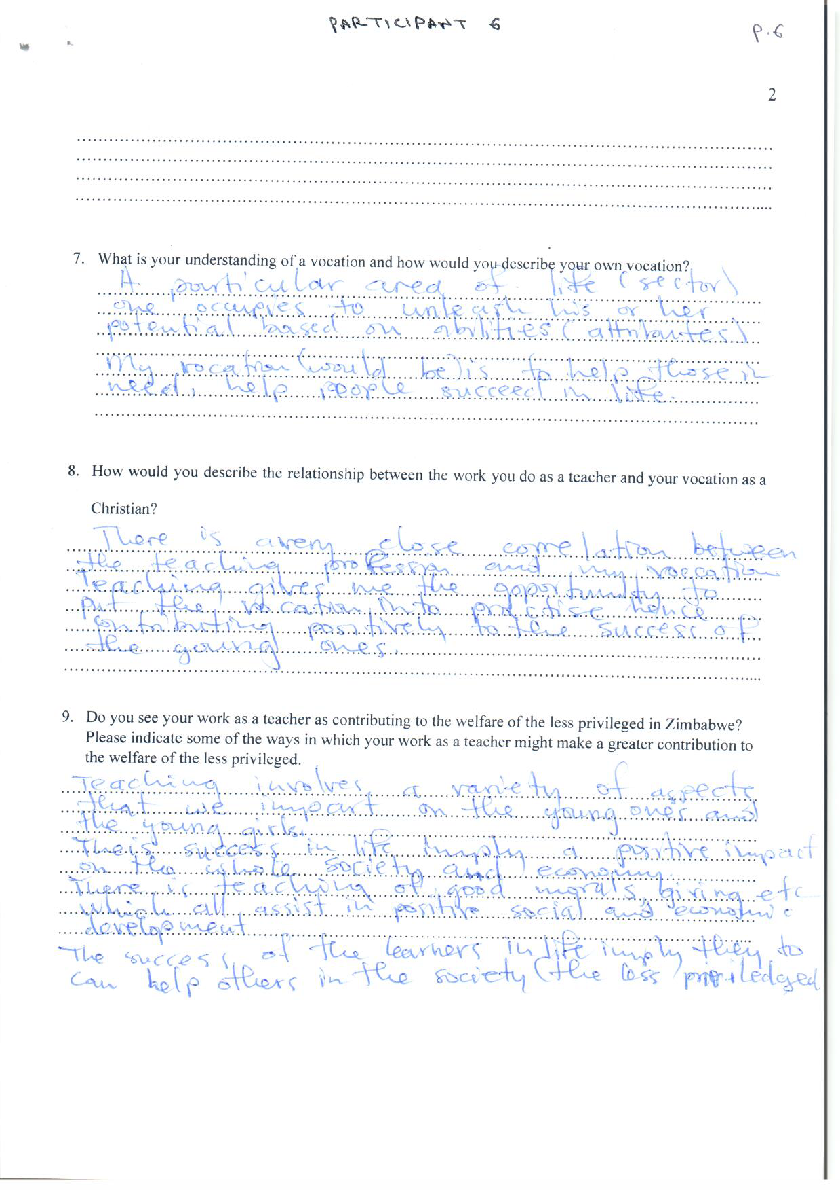 PARTICIPANT 6
P.6
2
7. What is your understanding of a vocation and how would you describe your own vocation?
A particular area of life (sector)
one occupies to unleash his or her
potential based on abilities (attributes)
My vocation (would be) is to help those in
need, help people succeed in life.
8. How would you describe the relationship between the work you do as a teacher and your vocation as a
Christian?
There is a very close correlation between
the teaching profession and my vocation
Teaching gives me the opportunity to
put the vocation into practise hence
contributing positively to the success of
the young ones.
9. Do you see your work as a teacher as contributing to the welfare of the less privileged in Zimbabwe?
Please indicate some of the ways in which your work as a teacher might make a greater contribution to
the welfare of the less privileged.
Teaching involves a variety of aspects
that we impart on the young ones and
the young girls.
Their success in life imply a positive impact
on the whole society and economy
There is teaching of good morals, giving etc
which all assist in positive social and economic
development
The success of the learners in life imply they to
can help others in the society (the less priviledged